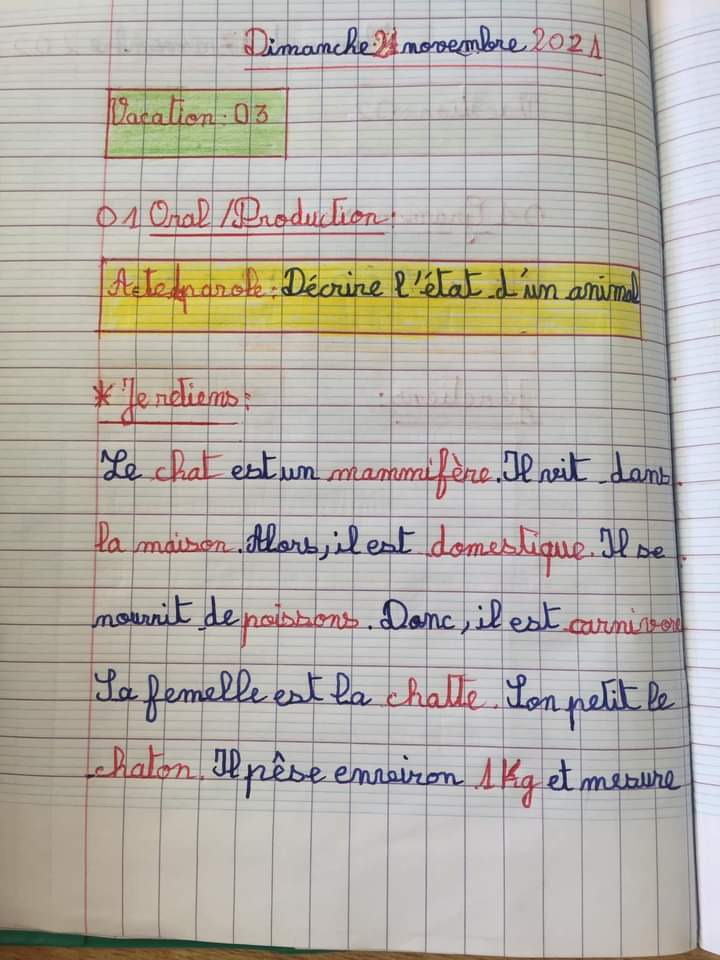 Dimanche 21 novembre 2021
Vacation : 03
01 Oral / Production :
Acte de parole : Décrire l'état d'un animal
* Je retiens :
Le chat est un mammifère. Il vit dans
la maison. Alors, il est domestique. Il se
nourrit de poissons. Donc, il est carnivore
La femelle est la chatte. Son petit le
chaton. Il pèse environ 1 Kg et mesure